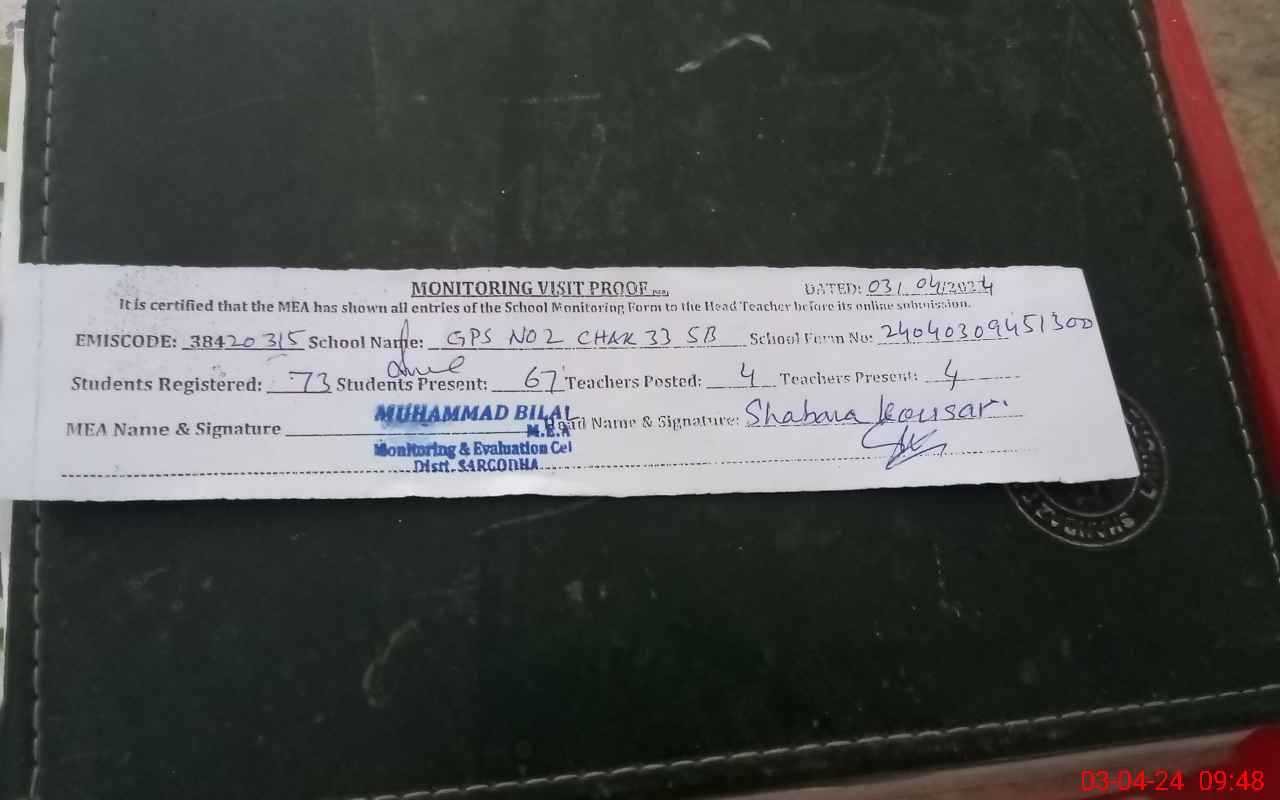 MONITORING VISIT PROOF
DATED: 03/04/2024
It is certified that the MEA has shown all entries of the School Monitoring Form to the Head Teacher before its online submission.
EMISCODE: 38420315 School Name: GPS NO2 CHAK 33 SB School Form No: 24040309451300
Students Registered: 73 Students Present: 67 Teachers Posted: 4 Teachers Present: 4
MEA Name & Signature MUHAMMAD BILAL Head Name & Signature: Shabana Kousar.
M.E.A
Monitoring & Evaluation Cel
Distt. SARGODHA
03-04-24 09:48